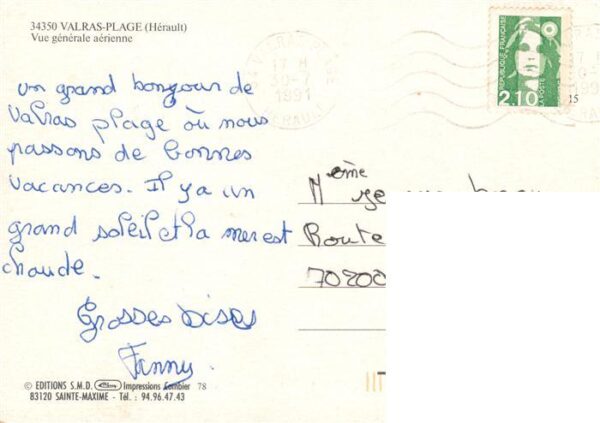 34350 VALRAS-PLAGE (Hérault)
Vue générale aérienne
un grand bonjour de
Valras plage où nous
passons de bonnes
vacances. Il y a un
grand soleil et la mer est
chaude.
Grosses bises
Fanny
Mème
Route
70200
17 H
30-7
1991
HERAULT
REPUBLIQUE FRANÇAISE
LA POSTE
2,10
© EDITIONS S.M.D. Impressions Combier 78
83120 SAINTE-MAXIME - Tél. : 94.96.47.43